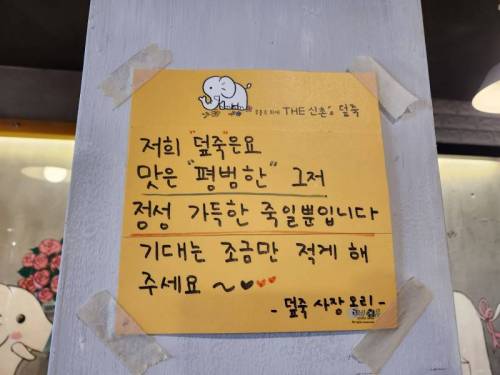 THE 신촌's 덮죽
저희 "덮죽"은요
맛은 "평범한" 그저
정성 가득한 죽일뿐입니다
기대는 조금만 적게 해
주세요 ~♥♥♥
- 덮죽 사장 오리 -